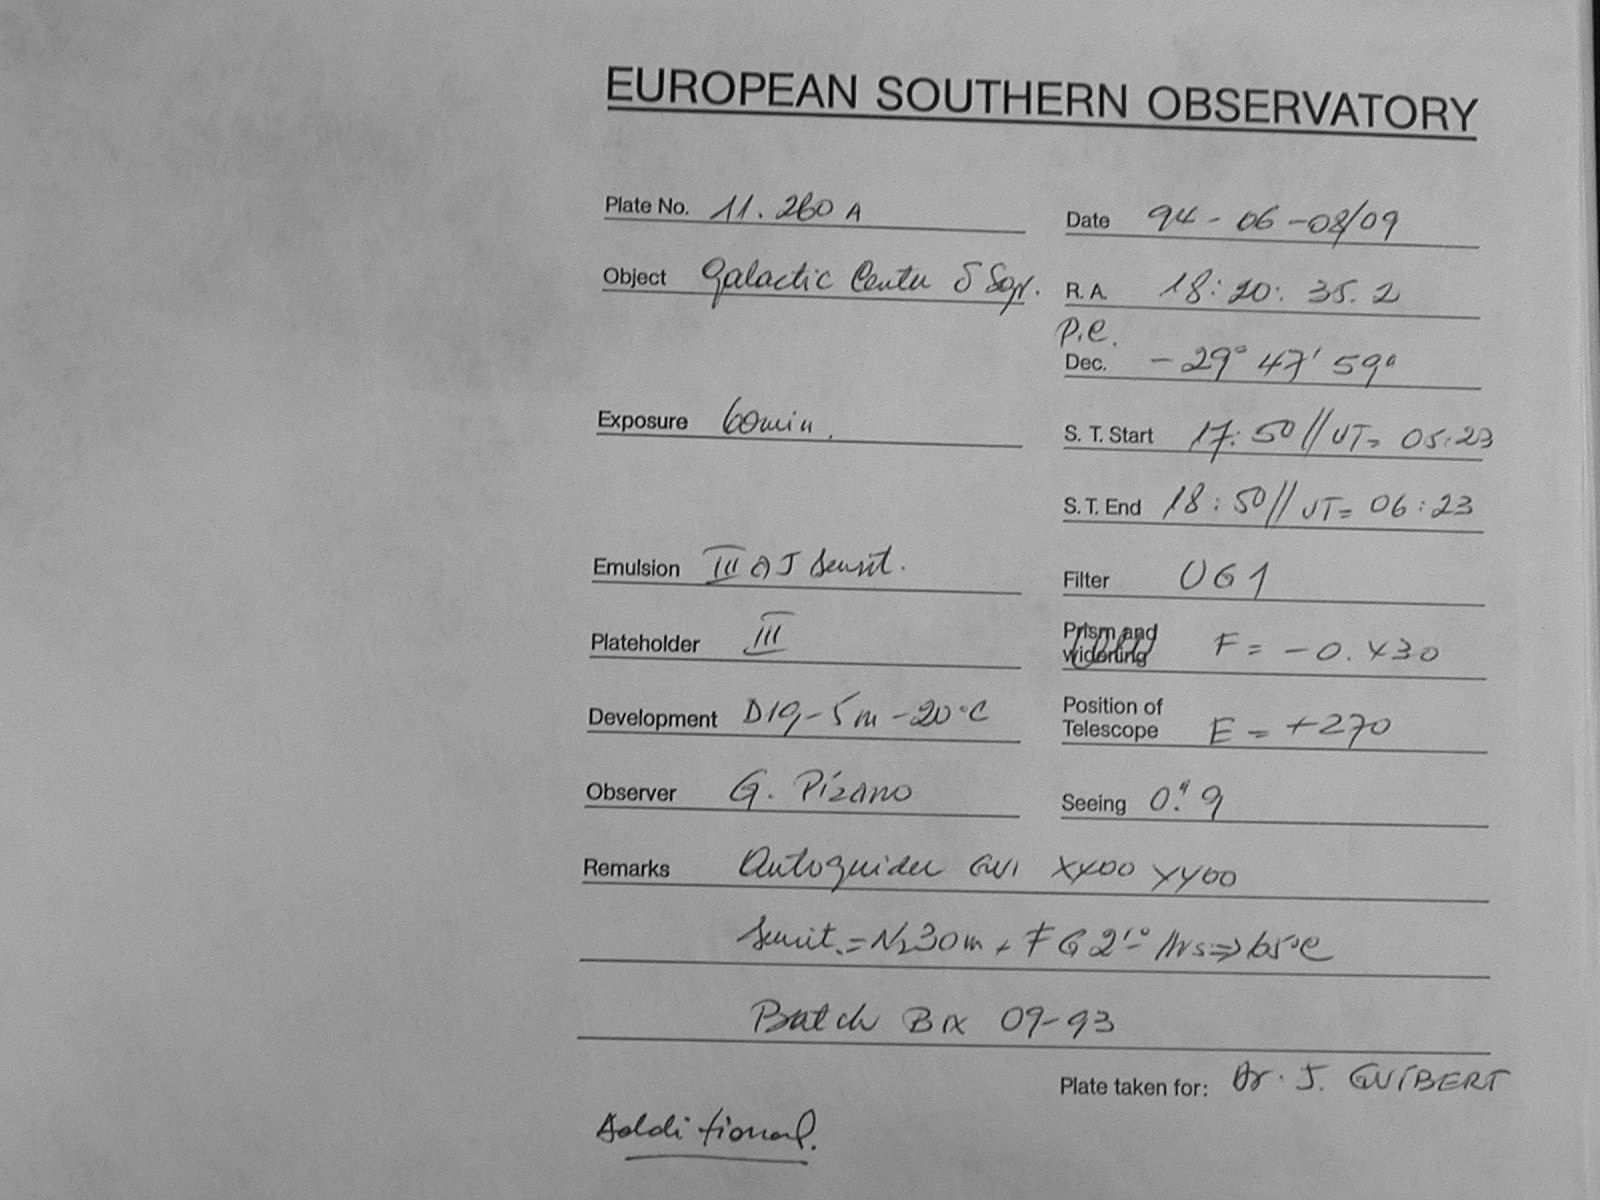 EUROPEAN SOUTHERN OBSERVATORY
Plate No. 11.260 A
Date 94-06-08/09
Object Galactic Center δ Sgr.
R.A. 18:20:35.2
P.E.
Dec. -29° 47' 59"
Exposure 60min.
S.T. Start 17:50//UT= 05:23
S.T. End 18:50//UT= 06:23
Emulsion III a J Sensit.
Filter UG1
Plateholder III
Prism and widening F = -0.430
Development D19-5m-20°C
Position of Telescope E = +270
Observer G. Pizarro
Seeing 0."9
Remarks Autoguider X400 Y400
Sensit.=N2 30m + FG 2 hrs⇒65°C
Batch 09-93
Plate taken for: Dr. J. GUIBERT
Additional.